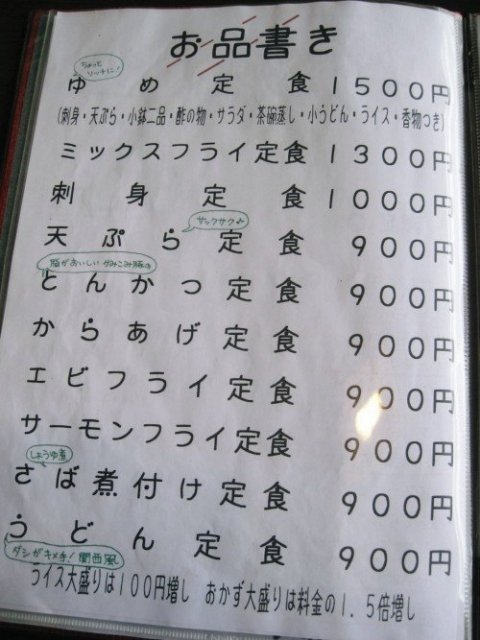 お品書き
ちょっとリッチに!
ゆめ定食 1500円
(刺身・天ぷら・小鉢二品・酢の物・サラダ・茶碗蒸し・小うどん・ライス・香物つき)
ミックスフライ定食 1300円
刺身定食 1000円
サックサク♪
天ぷら定食 900円
脂がおいしい
とんかつ定食 900円
からあげ定食 900円
エビフライ定食 900円
サーモンフライ定食 900円
しょうゆ煮
さば煮付け定食 900円
うどん定食 900円
ダシがキメテ!関西風
ライス大盛りは100円増し おかず大盛りは料金の1.5倍増し